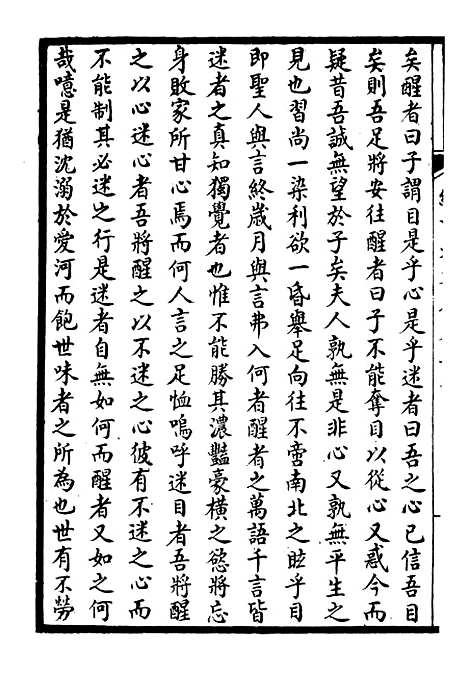 矣醒者曰子謂目是乎心是乎迷者曰吾之心已信吾目
矣則吾足將安往醒者曰子不能奪目以從心又惑今而
疑昔吾誠無望於子矣夫人孰無是非心又孰無平生之
見也習尚一染利欲一昏舉足向往不啻南北之眩乎目
即聖人與言終歲月與言弗入何者醒者之萬語千言皆
迷者之真知獨覺者也惟不能勝其濃豔豪橫之慾將忘
身敗家所甘心焉而何人言之足恤嗚呼迷目者吾將醒
之以心迷心者吾將醒之以不迷之心彼有不迷之心而
不能制其必迷之行是迷者自無如何而醒者又如之何
哉噫是猶沈溺於愛河而飽世味者之所為也世有不勞